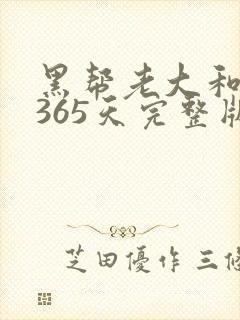 黑帮老大和
365天完整版
芝田優作 三